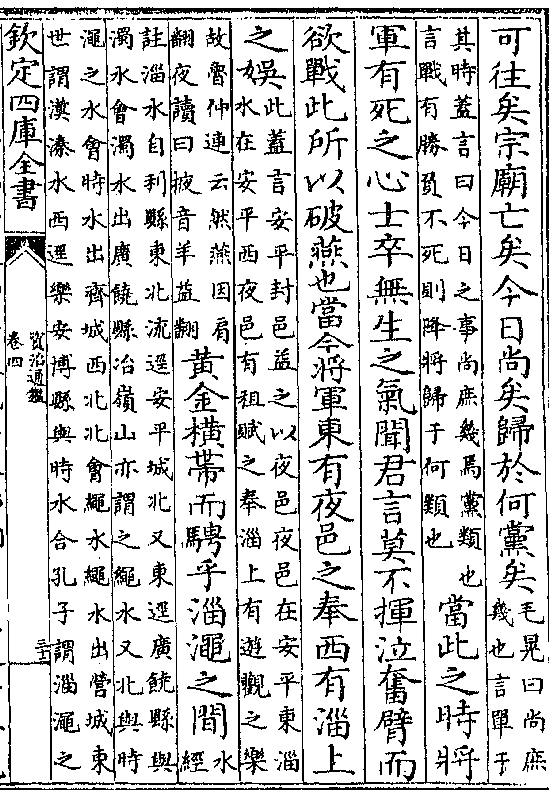 可往矣宗廟亡矣今日尚矣歸於何黨矣毛晃曰尚庶幾也言單于
其時蓋言曰今日之事尚庶幾焉黨類也言戰有勝負不死則降將歸于何類也當此之時將
軍有死之心士卒無生之氣聞君言莫不揮泣奮臂而
欲戰此所以破燕也當今將軍東有夜邑之奉西有淄上
之娯此蓋言安平封邑益之以夜邑夜邑在安平東淄水在安平西夜邑有租賦之奉淄上有遊觀之樂
故魯仲連云然燕因肩翻夜讀曰掖音羊益翻黄金横帶而騁乎淄澠之間水經
註淄水自利縣東北流逕安平城北又東逕廣饒縣與濁水會濁水出廣饒縣冶嶺山亦謂之繩水又北與時
澠之水會時水出齊城西北北會繩水繩水出營城東世謂漢溱水西逕樂安博縣與時水合孔子謂淄澠之
欽定四庫全書
資治通鑑
卷四